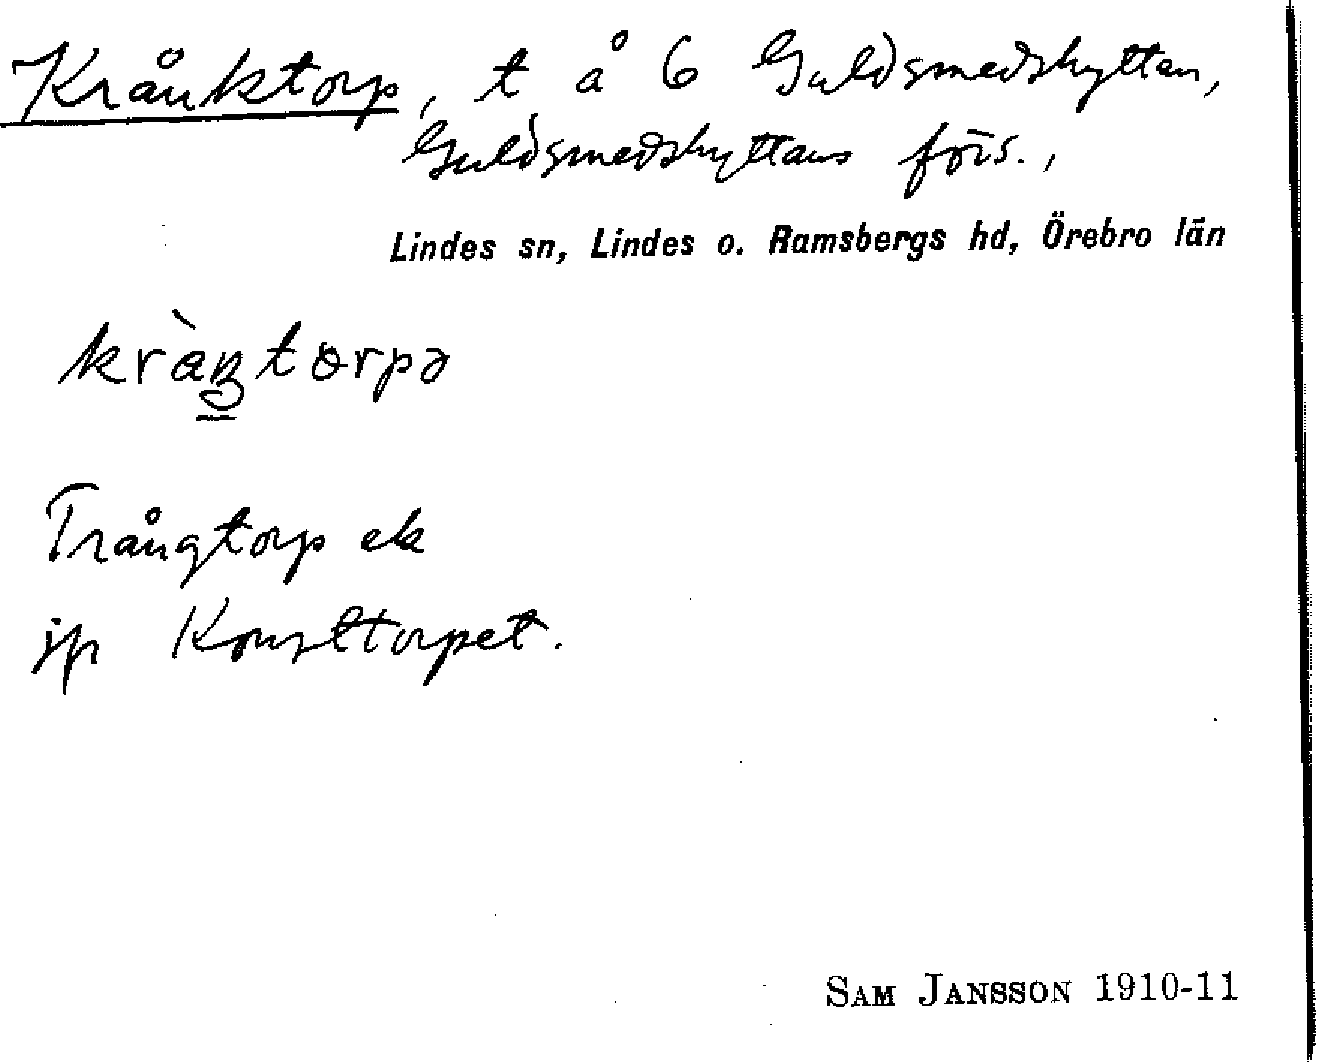 Krånktorp, t å 6 Guldsmedshyttan,
Guldsmedshyttans förs.,
Lindes sn, Lindes o. Ramsbergs hd, Örebro län
Trångtorp ek
jp Konsttorpet.
SAM JANSSON 1910-11